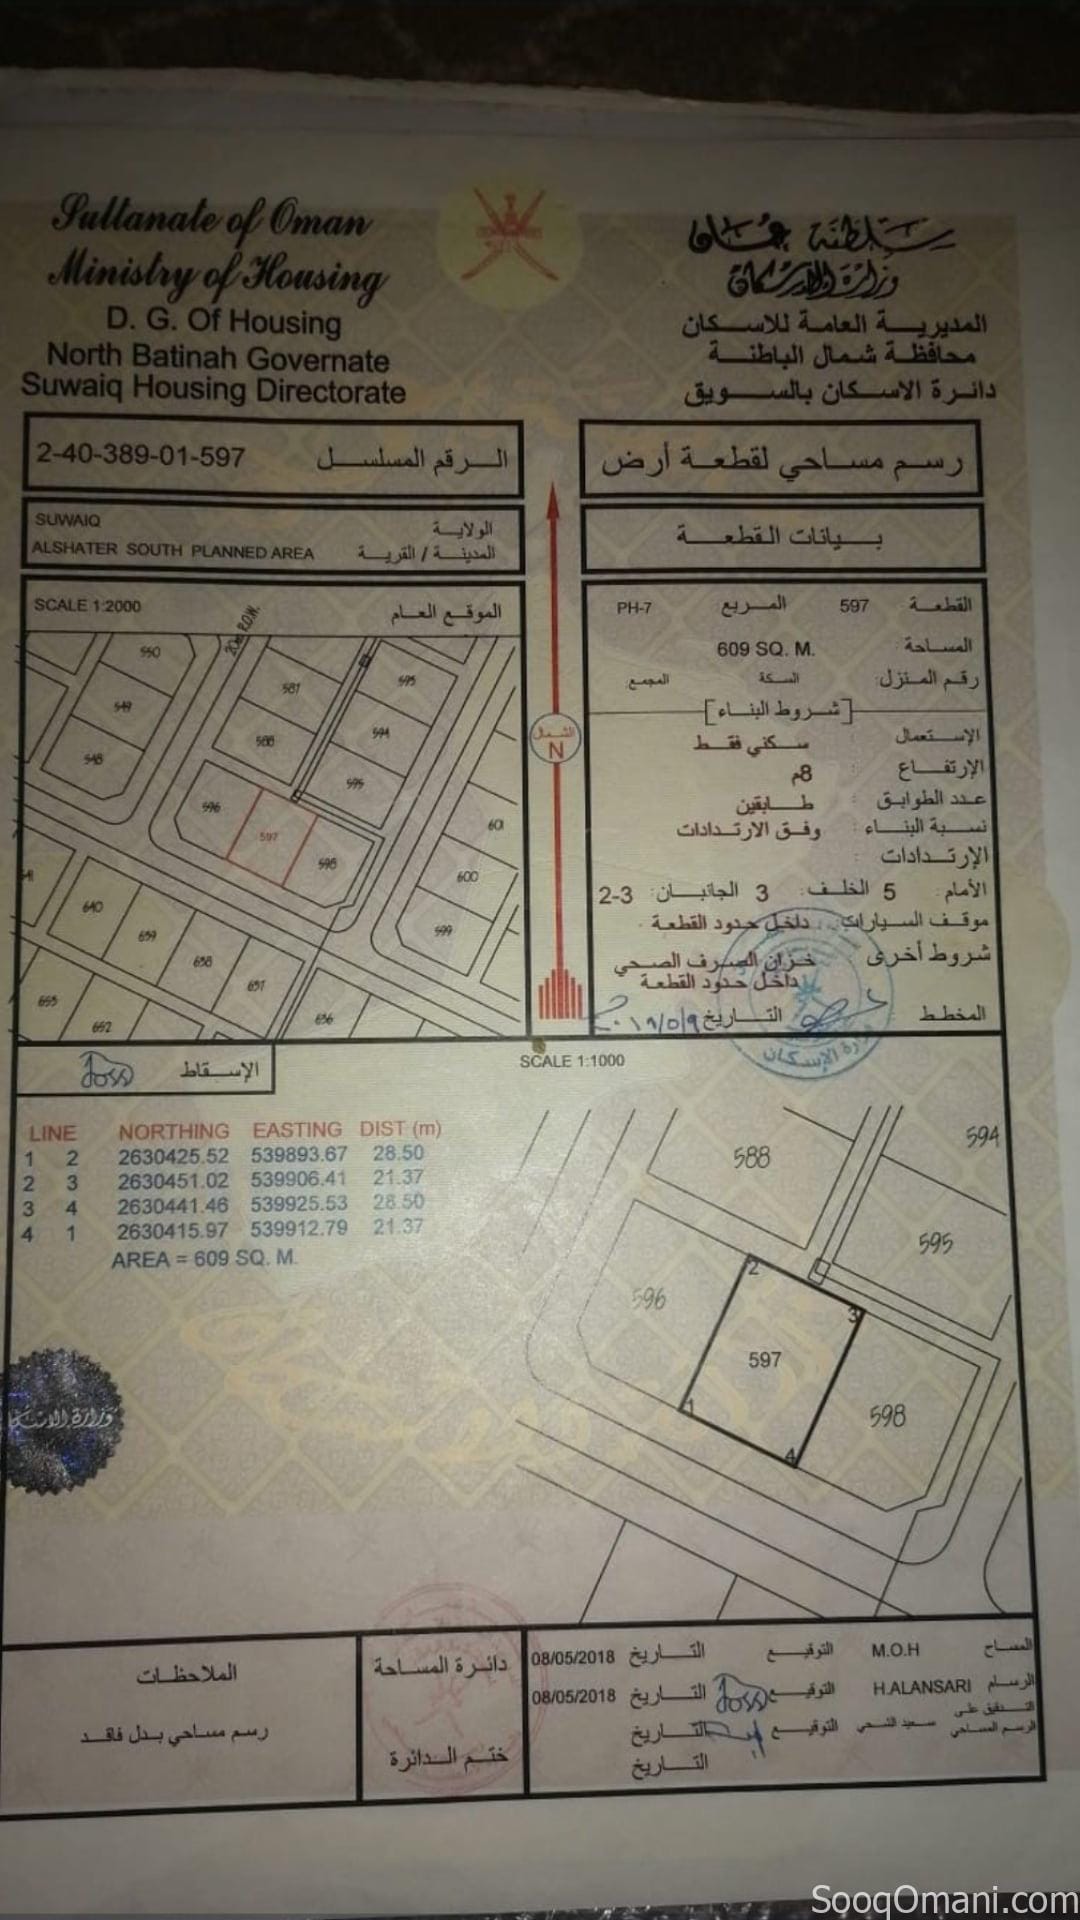 Sultanate of Oman
Ministry of Housing
D. G. Of Housing
North Batinah Governate
Suwaiq Housing Directorate
سلطنة عمان
وزارة الإسكان
المديرية العامة للاسكان
محافظة شمال الباطنة
دائرة الاسكان بالسويق
2-40-389-01-597 الرقم المسلسل
رسم مساحي لقطعة أرض
SUWAIQ الولاية
ALSHATER SOUTH PLANNED AREA المدينة / القرية
بيانات القطعة
SCALE 1:2000 الموقع العام
20m R.O.W.
550
549
548
581
588
595
594
595
596
597
598
601
600
599
640
659
658
651
656
653
652
الشمال
N
القطعة : 597 المربع PH-7
المساحة : 609 SQ. M.
رقم المنزل: السكة المجمع:
[شروط البناء]
الإستعمال : سكني فقط
الإرتفاع : 8م
عدد الطوابق : طابقين
نسبة البناء : وفق الارتدادات
الإرتدادات :
الأمام: 5 الخلف: 3 الجانبان: 2-3
موقف السيارات: داخل حدود القطعة
شروط أخرى : خزان الصرف الصحي
داخل حدود القطعة
المخطط التاريخ ٢٠١٨/٥/٩
وزارة الإسكان
الإسقاط
SCALE 1:1000
LINE NORTHING EASTING DIST (m)
1 2 2630425.52 539893.67 28.50
2 3 2630451.02 539906.41 21.37
3 4 2630441.46 539925.53 28.50
4 1 2630415.97 539912.79 21.37
AREA = 609 SQ. M.
588
594
595
596
2
3
597
1
4
598
وزارة الاسكان
الملاحظات
رسم مساحي بدل فاقد
دائرة المساحة
ختم الدائرة
المساح M.O.H التوقيع التاريخ 08/05/2018
الرسام H.ALANSARI التوقيع التاريخ 08/05/2018
التدقيق على
الرسم المساحي التوقيع التاريخ
التاريخ
SooqOmani.com